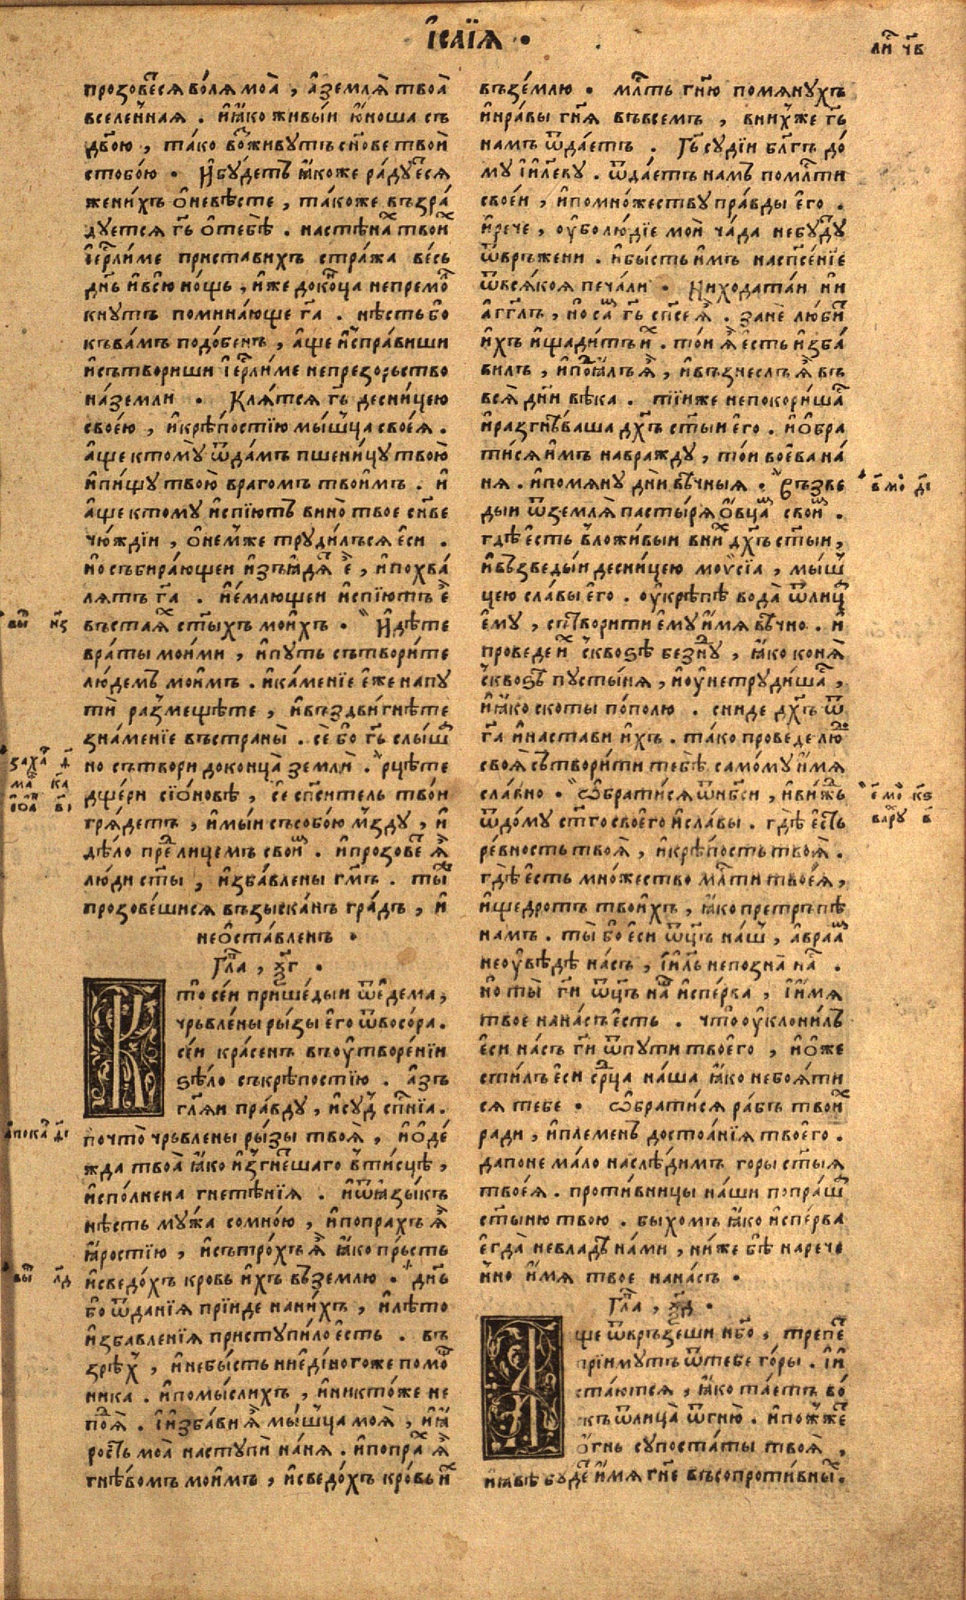 І҆са́їѧ .
ли чв
прозове́сѧ во́лѧ моѧ̀ , а҆землѧ̀ твоѧ̀
вселе́ннаѧ . и҆ꙗ҆́ко живы́и ю҆́ноша съ
дв҃ою , та́ко в̾живутъ сн҃ове твоѝ
стобо́ю . И҆бꙋ́детъ ꙗ҆́коже ра́дꙋе҆сѧ
жени́хъ ѻ҆неве́сте , та́коже въ́зра
дꙋетсѧ гь҃ ѻ҆тебѣ̀ . настѣна́ твои
і҆е҆рл҃име приста́вихъ стра́жа ве́сь
дн҃ь и҆всю̀ но́щь , и҆́же доко́нца непремо
кнутъ помина́юще га҃ . нѣ́сть бо
къва́мъ подо́бенъ , а҆́ще и҆спра́виши
и҆сътвориши і҆е҆рл҃име непрезо́рьство
на́земли . Клѧ́тсѧ гь҃ десни́цею
свое́ю , и҆крѣ́постїю мы́шца своеѧ̀ .
а҆́ще ктомꙋ̀ ѿда́мъ пшени́цꙋ твою̀
и҆пи́щꙋ твою̀ врагомъ твои́мъ . и҆
а҆́ще ктомꙋ и҆спїю́тъ вино̀ твое сн҃ве
чю́ждїи , ѻ҆не́мже трꙋди́лъсѧ е҆си .
но събира́ющеи и҆зъꙗ҆дѧ́ е , и҆похва
лѧ́тъ га҃ . и҆е҆́млющеи и҆спїю́тъ е
въстаѧ ст҃ы́хъ мои́хъ . И҆дѣ́те
вра́ты мои́ми , и҆пꙋть сътвори́те
лю́демъ мои́мъ . и҆ка́менїе е҆́же напꙋ
тѝ разме́щѣте , и҆въздви́гнѣте
зна́менїе въстраны̀ . сѐ бо гь҃ слы́ш
но сътвори доконца̀ землѝ . рцѣ́те
дще́ри сїо́новѣ , се сп҃си́тель твоѝ
грѧде́тъ , и҆мы́и съсобо́ю мздꙋ , и҆
дѣ́ло пре лице́мъ свои . и҆прозове ѧ҆̀
лю́ди ст҃ы , и҆зба́влены гм҃ъ . ты
прозове́шисѧ възы́сканъ гра́дъ , и҆
неѻ҆ста́вленъ .
Гла , ѯг .
Кто̀ се́и прише́дыи ѿе҆де́ма ,
чръвле́ны ры́зы е҆го ѿвосо́ра .
се́и кра́сенъ въоу҆творе́нїи
ѕѣ́ло съкрѣ́постїю . а҆́зъ
гл҃ѧи пра́вдꙋ , и҆сꙋд сп҃нїа .
почто̀ чръвле́ны ры́зы твоѧ̀ , и҆ѻ҆де́
жда твоѧ̀ ꙗ҆́ко и҆згне́шаго втисцѣ̀ ,
и҆спо́лнена гнете́нїѧ . и҆ѿꙗ҆зы́къ
нѣ́сть мꙋ́жа сомно́ю , и҆попра́хъ ѧ҆̀
ꙗ҆́ростїю , и҆сътро́хъ ѧ҆̀ ꙗ҆́ко пръсть
и҆сведо́хъ кровь и҆́хъ въ́землю . дн҃ь
бо ѿда́нїѧ прїи́де нани́хъ , и҆лѣ́то
и҆збавле́нїѧ пристꙋпи́ло е҆сть . въ
зрѣ́х , и҆небы́сть ние҆ди́ногоже помо
ника . и҆помы́слихъ , и҆никто́же не
поѧ̀ . і҆и҆зба́ви ѧ҆̀ мы́шца моѧ̀ , и҆ꙗ҆
рость моѧ̀ настꙋпѝ на́нѧ . и҆попра ѧ҆̀
гнѣ́вомъ мои́мъ , и҆сведо́хъ кро́вь и҆
въземлю . млть гн҃ю помѧнꙋ́хъ
и҆нра́вы гн҃ѧ въвсе́мъ , вни́хже гь҃
намъ ѿдае́тъ . Гь҃ сꙋдїи бл҃гъ до
мꙋ і҆и҃левꙋ . ѿдае́тъ намъ помл҃ти
свое́и , и҆помно́жествꙋ пра́вды е҆го .
и҆рече , оу҆бо лю́дїе моѝ ча́да небꙋ́дꙋ
ѿвръ́жени . и҆бы́сть и҆́мъ насп҃се́нїе
ѿвсѧ́коѧ печа́ли . Ни́ходата́и ни
а҆́гг҃лъ , но са гь҃ сп҃се ѧ҆̀ . занѐ лю́би
и҆хъ и҆щади́тъ и҆ . то́и ѧ҆̀ е҆сть и҆зба
вилъ , и҆поꙗ҆лъ ѧ҆̀ , и҆възнесл̀ъ ѧ҆̀ въ
всѧ̀ дн҃и вѣ́ка . ти́иже непокори́ша
и҆разгнѣ́ваша дх҃ъ ст҃ы́и е҆го . и҆ѻ҆бра
ти́сѧ и҆́мъ навраждꙋ , то́и воева на́
нѧ . и҆помѧнꙋ дн҃и вѣ́чныѧ . Възве
ды́и ѿземлѧ̀ па́стырѧ ѻ҆вца свои .
гдѣ̀ е҆сть вложи́выи вни дх҃ъ ст҃ы́и ,
и҆възведы́и десни́цею моѵсїа , мыш
цею сла́вы е҆го . оу҆крѣпѣ̀ вода̀ ѿлиц
е҆мꙋ , сътвори́ти е҆мꙋ и҆́мѧ вѣ́чно . и҆
проведе и҆ сквоѕѣ̀ безнꙋ , ꙗ҆́ко конѧ̀
сквоѕѣ̀ пꙋсты́нѧ , и҆оу҆нетрꙋди́ша ,
и҆ꙗ҆́ко скоты по́полю . сни́де дх҃ъ ѿ
га҃ и҆наста́ви и҆́хъ . та́ко проведе лю
своѧ̀ сътвори́ти тебѣ̀ само́мꙋ и҆́мѧ
сла́вно . Ѡ҆брати́сѧ ѿнб҃си , и҆ви́жь
ѿдо́мꙋ ст҃го своего и҆сла́вы . гдѣ̀ е҆сть
ре́вность твоѧ̀ , и҆крѣ́пость твоѧ̀ .
гдѣ̀ е҆сть мно́жество мл҃ти твоеѧ̀ ,
и҆щедро́тъ твои́хъ , ꙗ҆́ко претръпѣ̀
намъ . ты̀ бо е҆си ѿц҃ъ на́ш , а҆враа
неоу҆вѣ́дѣ на́съ , і҆и҃ль непозна̀ на .
но ты̀ гн҃и ѿц҃ъ на и҆спе́рва , і҆и҆́мѧ
твое на́насъ е҆сть . что̀ оу҆клони́лъ
е҆си на́съ гн҃и ѿпꙋти твоего , и҆ѻ҆же
сти́лъ е҆си ср҃ца на́ша ꙗ҆́ко небоѧ́ти
сѧ тебе . Ѡ҆брати́сѧ ра́бъ твои
ради , и҆племе́нъ достоѧ́нїѧ твоего .
дапоне ма́ло наслѣ́димъ горы ст҃ы́ѧ
твоеѧ̀ . проти́вницы на́ши попра́ш
ст҃ы́ню твою . бы́хомъ ꙗ҆́ко и҆спе́рва
е҆гда̀ невладѣ̀ на́ми , ни́же бѣ̀ нарече
нно и҆́мѧ твое на́насъ .
Гла , ѯд .
Аще ѿвръ́зеши нб҃о , трепе
прїи́мꙋтъ ѿтебе го́ры . і҆и҆
ста́ютсѧ , ꙗ҆́ко та́етъ во́
къ ѿлица̀ ѻ҆гню . и҆пожже
ѻ҆гнь сꙋпоста́ты твоѧ̀ ,
и҆ꙗ҆вѣ бꙋде и҆́мѧ гн҃е въсопроти́вны .
вы нѕ
заха
ма ка
іоа
апока
вы лд
вмо ді
е мо кѕ
варꙋ в